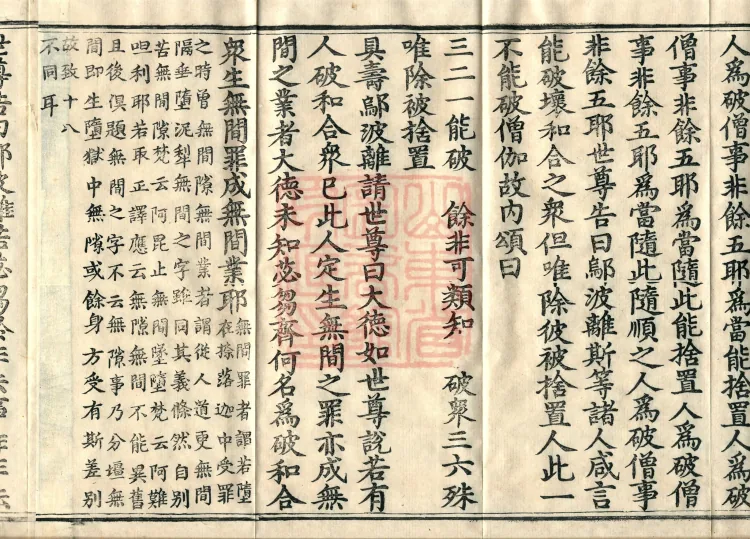 人為破僧事非餘五耶為當能捨置人為破
僧事非餘五耶為當隨此能捨置人為破僧
事非餘五耶為當隨此隨順之人為破僧事
非餘五耶世尊告曰鄔波離斯等諸人咸言
能破壞和合之衆但唯除彼被捨置人此一
不能破僧伽故内頌曰
三二一能破 餘非可類知 破衆三六殊
唯除被捨置
具壽鄔波離請世尊曰大德如世尊說若有
人破和合衆已此人定生無間之罪亦成無
間之業者大德未知苾芻齊何名為破和合
衆生無間罪成無間業耶
無間罪者謂若墮
在捺落迦中受罪
之時曾無間隙無間業若謂從人道更無間
隔垂墮泥犁無間之字雖同其義條然自別
苦無間隙梵云阿毘止無間墜墮梵云阿難
呾利耶若取正譯應云無隙無間不能異舊
且後俱題無間之字不云無隙事乃分壃無
間即生墮獄中無隙或餘身方受有斯差別
故致十八
不同耳